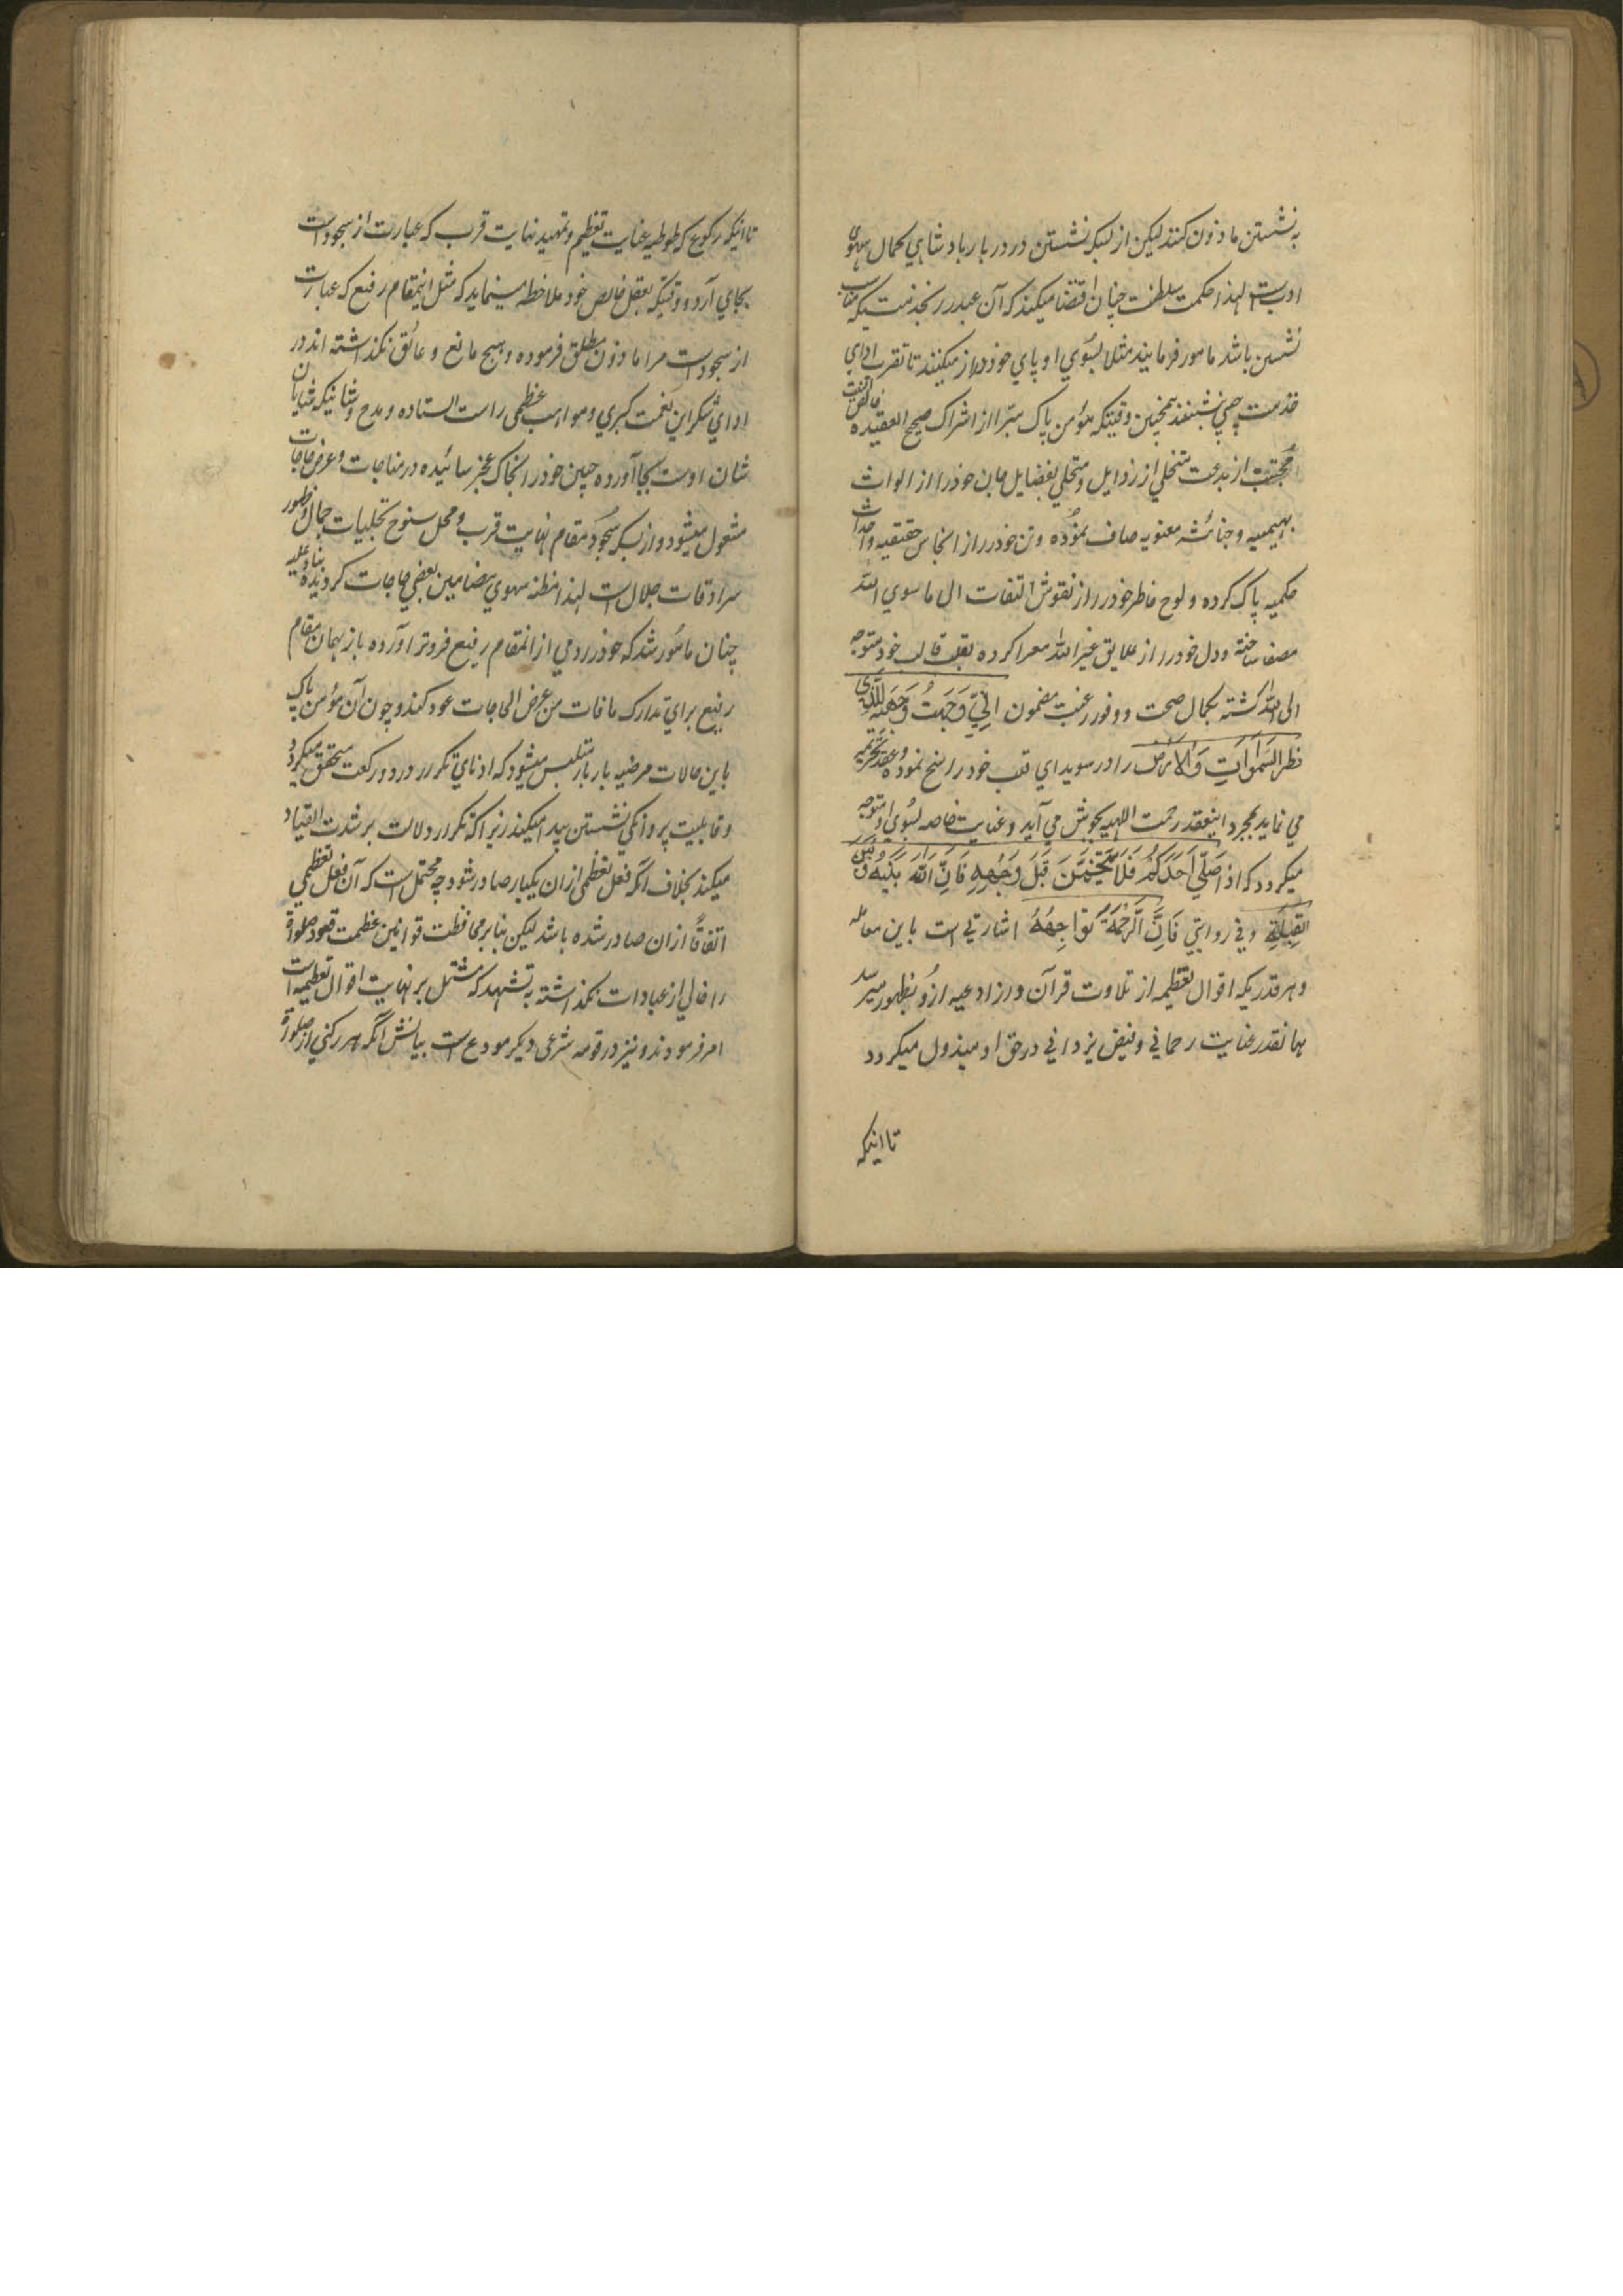 به نشستن ماذون کنند لیکن از بسکه نشستن در دربار بادشاهی بکمال سهوی
ادب است لهذا حکمت سلطنت چنان اقتضا میکند که آن عبد را بخدمتیکه مناسب
نشستن باشد مامور فرمایند مثلا بسوی او پای خود دراز میکنند تا تقریب ادای
خدمت چپی بنشیند همچنین وقتیکه مؤمن پاک مبرا از اشراک صحیح العقیده خالص النیت
مجتنب از بدعت متخلی از رذایل و متحلی بفضایل جان خود را از الواث
بهیمیه و جنائث معنویه صاف نموده و تن خود را از انجاس حقیقیه و احداث
حکمیه پاک کرده و لوح خاطر خود را از نقوش التفات الی ما سوی الله
مصفا ساخته و دل خود را از علایق غیر الله معرا کرده بقلب قالب خود متوجه
الی الله گشته بکمال صحت و وفور رغبت مضمون اِنِّی وَجَّهْتُ وَجْهِیَ لِلَّذِی
فطر السَّمٰوَاتِ وَالْاَرْضَ را در سویدای قلب خود راسخ نموده و عقد تحریمه
می نماید بمجرد اینعقد رحمت الٰهیه بجوش می آید و عنایت خاصه بسوی او متوجه
میگردد که اذا صَلّٰی اَحَدُکُمْ فَلَا یَتَنَخَّمَنَّ قِبَلَ وَجْهِهِ فَاِنَّ اللّٰهَ بَیْنَهُ وَبَیْنَ
القِبْلَةِ و فی روایتی فَاِنَّ الرَّحْمَةَ تُوَاجِهُهُ اشارتی است باین معامله
و هر قدریکه اقوال تعظیمیه از تلاوت قرآن و از ادعیه ازو بظهور میرسد
همانقدر عنایت رحمانی و فیض یزدانی در حق او مبذول میگردد
تا اینکه
تا اینکه رکوع که طوطیه غایت تعظیم و تمهید نهایت قرب که عبارت از سجود است
بجای آرد و وقتیکه بعقل خالص خود ملاحظه مینماید که مثل اینمقام رفیع که عبارت
از سجود است مرا ماذون مطلق فرموده و هیچ مانع و عائق نگذاشته اند در
ادای شکر این نعمت کبری و مواهب عظمی راست استاده و مدح و ثنائیکه شایان
شان اوست بجا آورده جبین خود را بخاک عجز سائیده در مناجات و عرض حاجات
مشغول میشود و از بسکه سجود مقام نهایت قرب و محل سنوح تجلیات جمال و ظهور
سرادقات جلال است لهذا مظنه سهوی مضامین بعضی حاجات گردیده بناءً علیه
چنان مأمور شد که خود را دمی از انمقام رفیع فروتر آورده باز بهمان مقام
رفیع برای تدارک مافات من عرض الحاجات عود کند و چون آن مؤمن پاک
باین حالات مرضیه بار بار متلبس میشود که ادنای تکرر در دو رکعت متحقق میگردد
و قابلیت پروانگی نشستن پیدا میکند زیراکه تکرار دلالت بر شدت انقیاد
میکند بخلاف آنکه فعل تعظیمی ازان یکبار صادر شود چه محتمل است که آن فعل تعظیمی
اتفاقاً ازان صادر شده باشد لیکن بنابر محافظت قوانین عظمت قعود صلوة
را خالی از عبادات نگذاشته به تشهد که مشتمل بر نهایت اقوال تعظیمیه است
امر فرمودند و نیز در قومه سرّی دیگر مودع است بیانش آنکه هر رکنی از صلوة